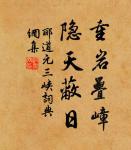 重岩叠嶂
隐天蔽日
郦道元三峡詞典
網集